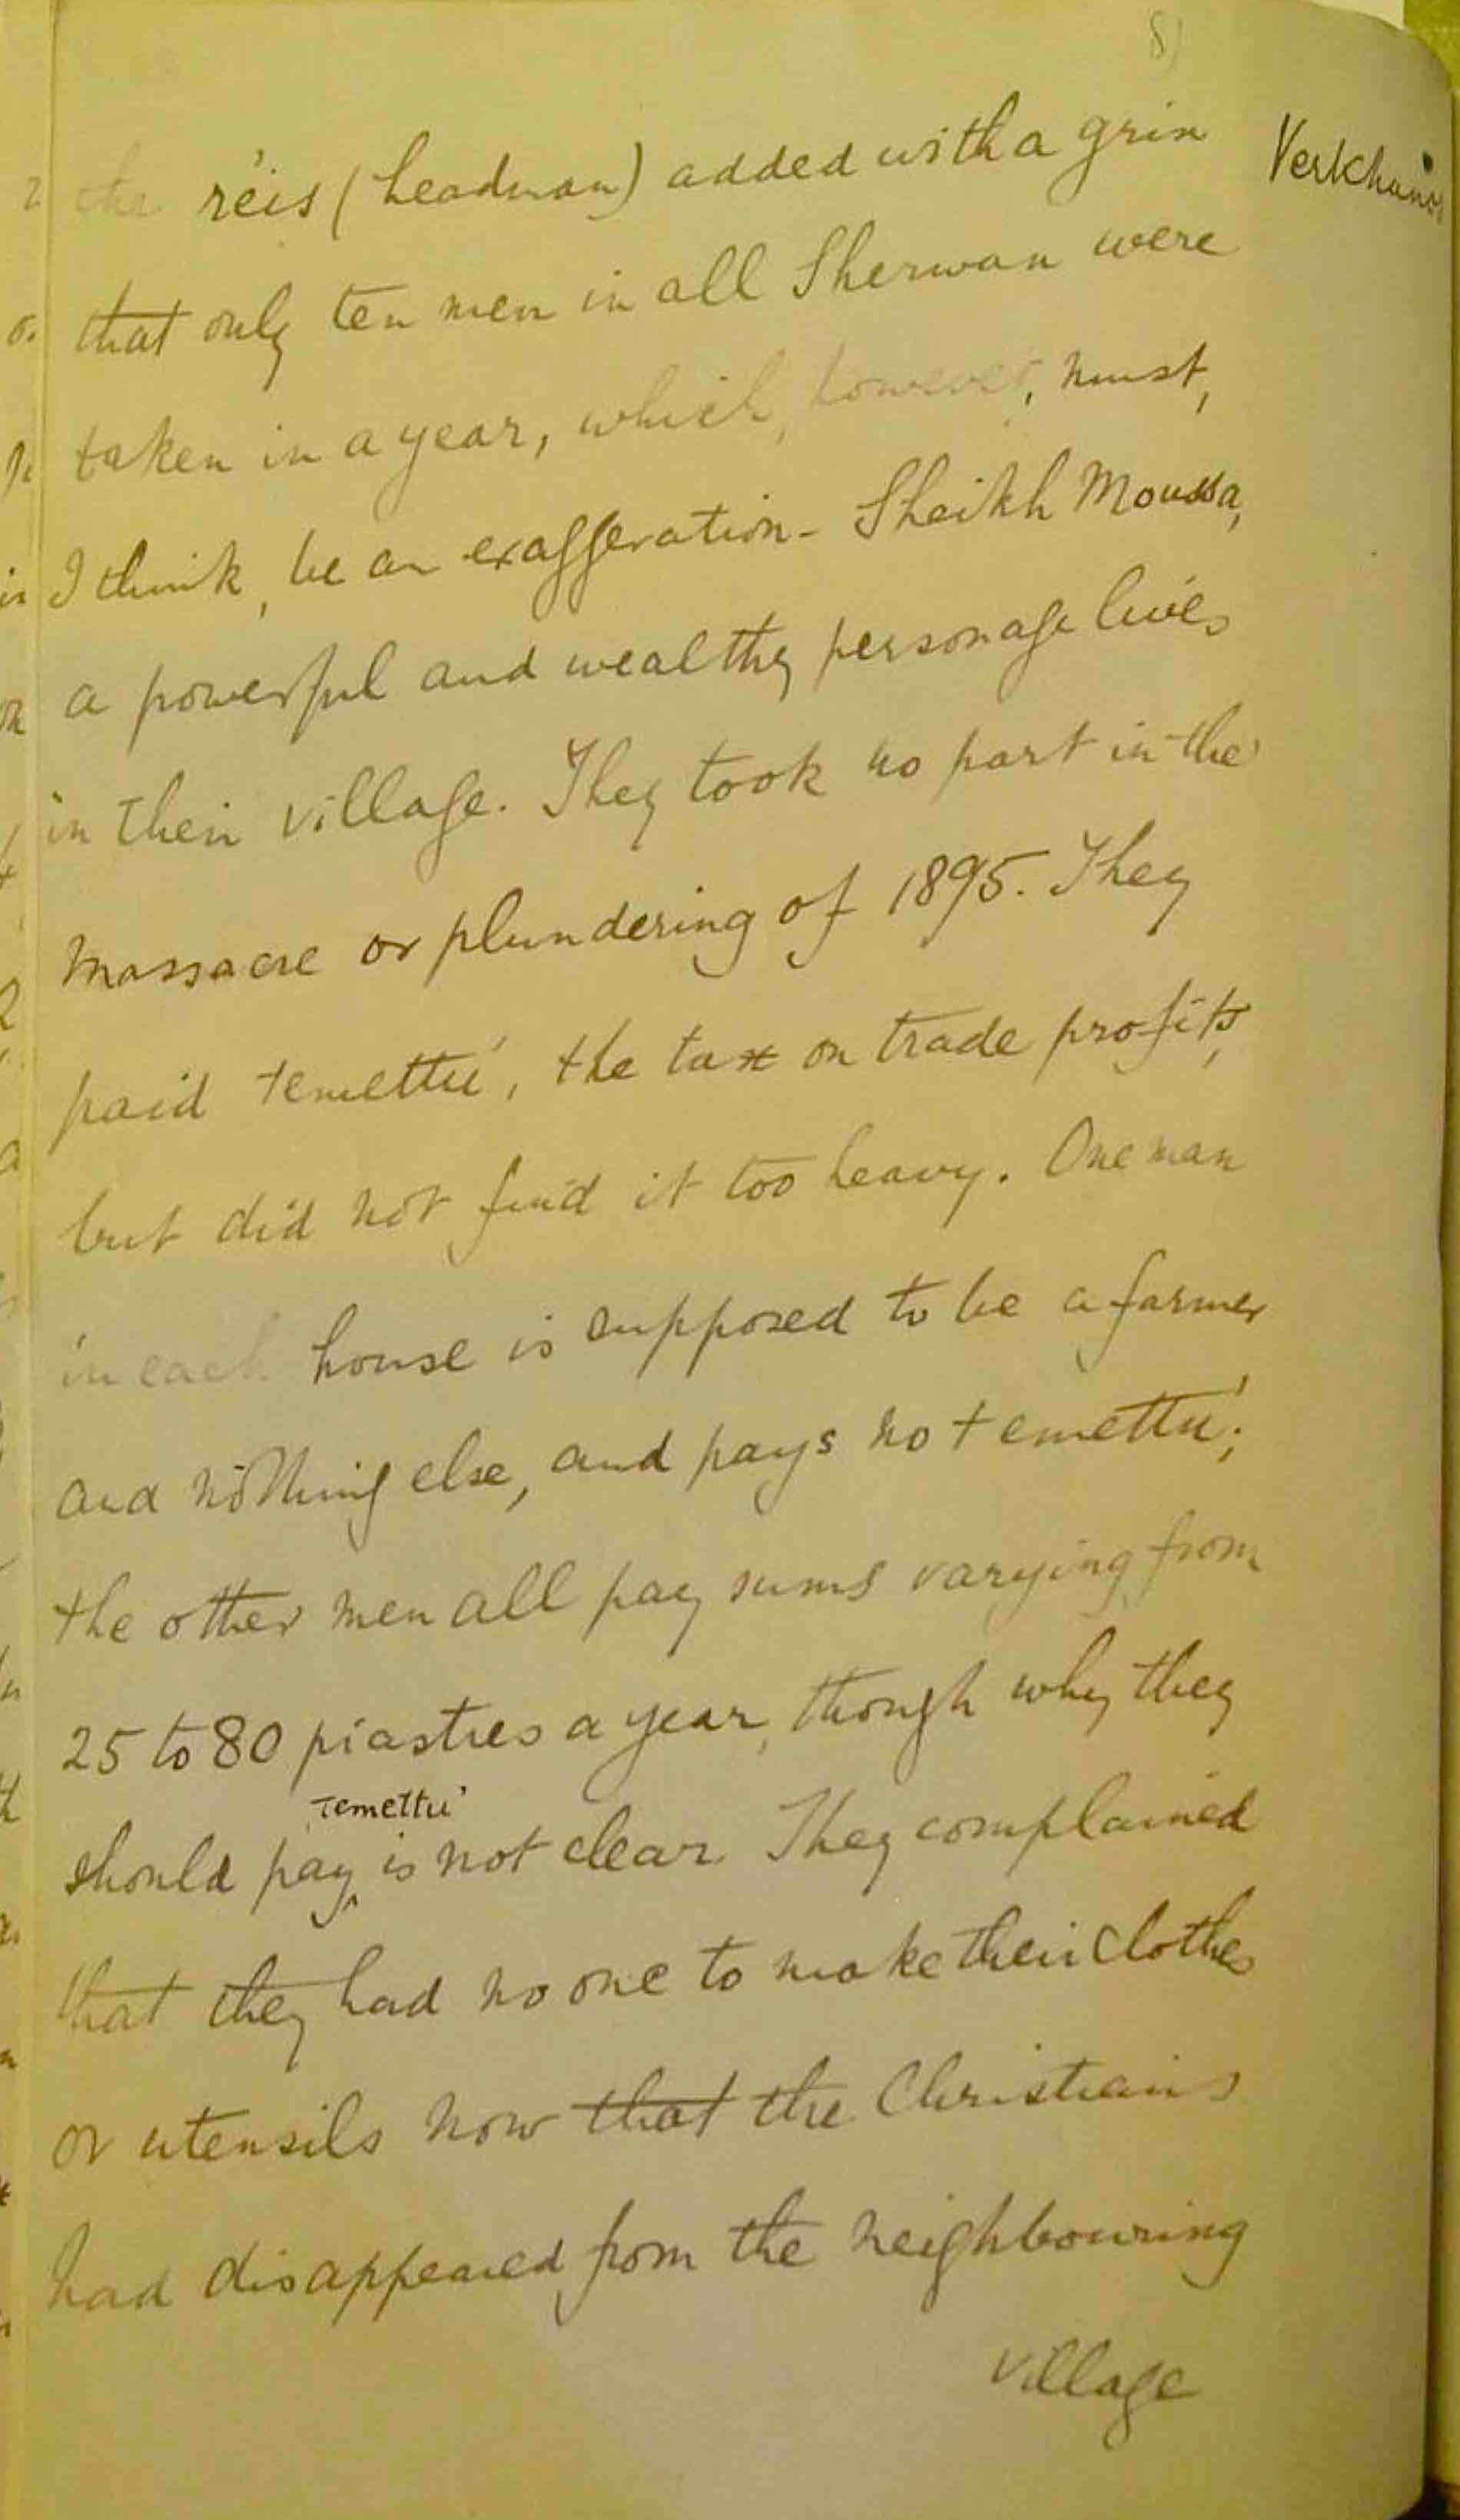 8)
the réis (headman) added with a grin
Verkhanis
that only ten men in all Sherwan were
taken in a year, which, however, must,
I think, be an exaggeration - Sheikh Moussa,
a powerful and wealthy personage lives
in their village. They took no part in the
massacre or plundering of 1895. They
paid temettü', the tax on trade profits,
but did not find it too heavy. One man
in each house is supposed to be a farmer
and nothing else, and pays no temettu';
the other men all pay sums varying from
25 to 80 piastres a year, though why they
temettü'
should pay is not clear. They complained
that they had no one to make their clothes
or utensils now that the Christians
had disappeared from the neighbouring
village